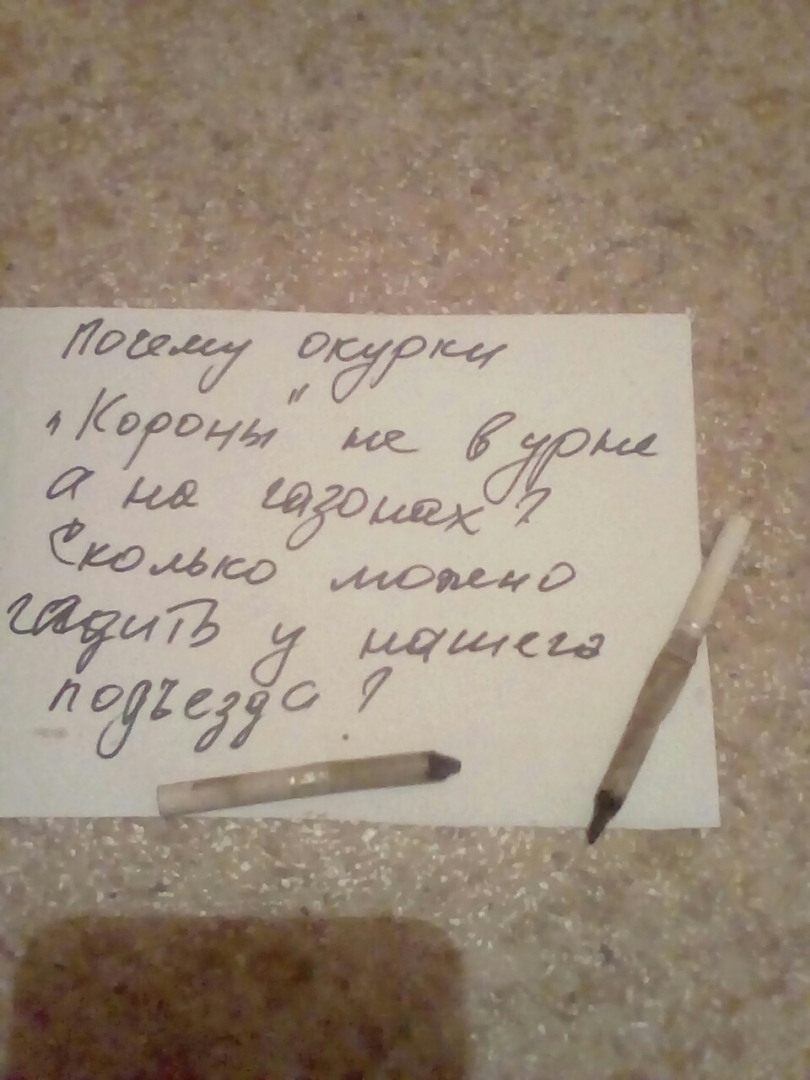 Почему окурки
„Короны" не в урне
а на газонах?
Сколько можно
гадить у нашего
подъезда?